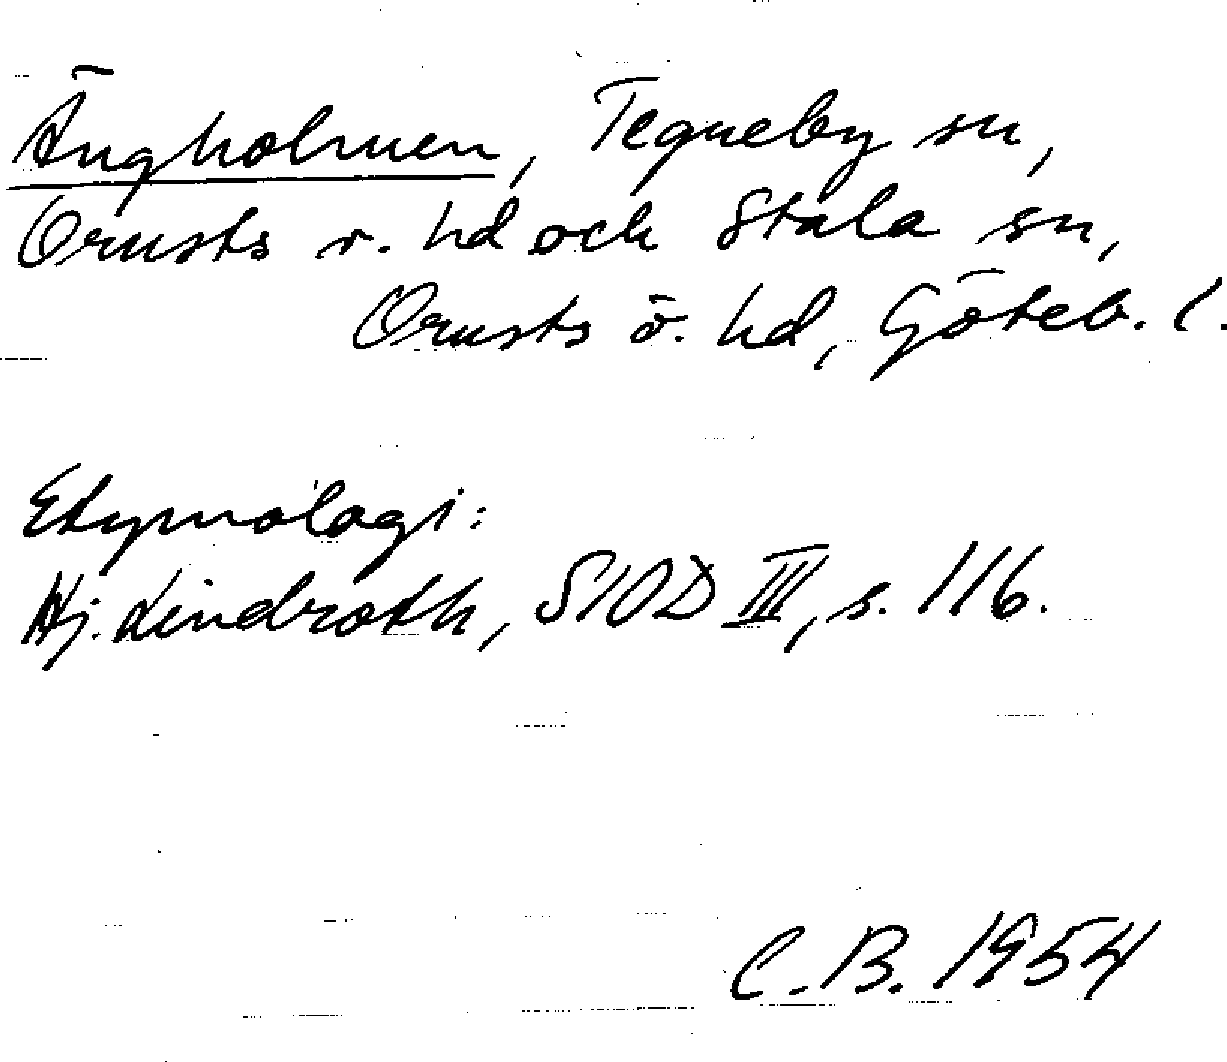 Ängholmen, Tegneby sn,
Orusts v. hd och Stala sn,
Orusts ö. hd, Göteb. l.
Etymologi:
Hj. Lindroth, SIOD III, s. 116.
C.B. 1954